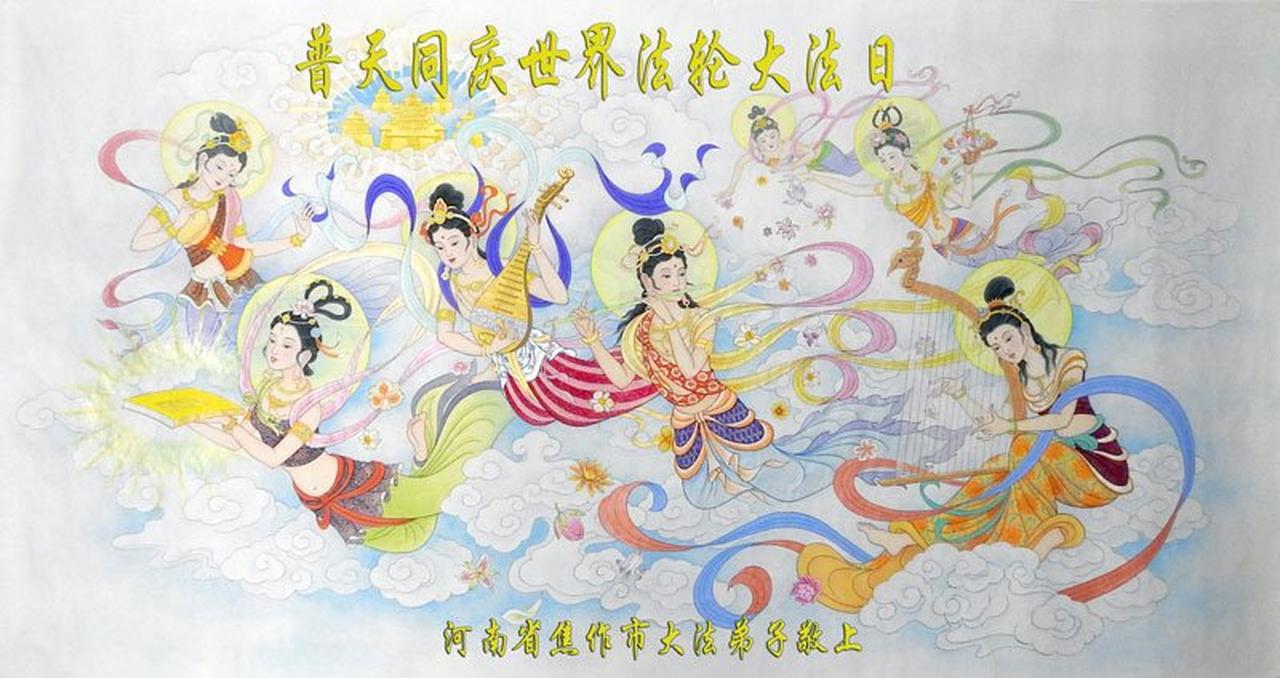 普天同庆世界法轮大法日
河南省焦作市大法弟子敬上